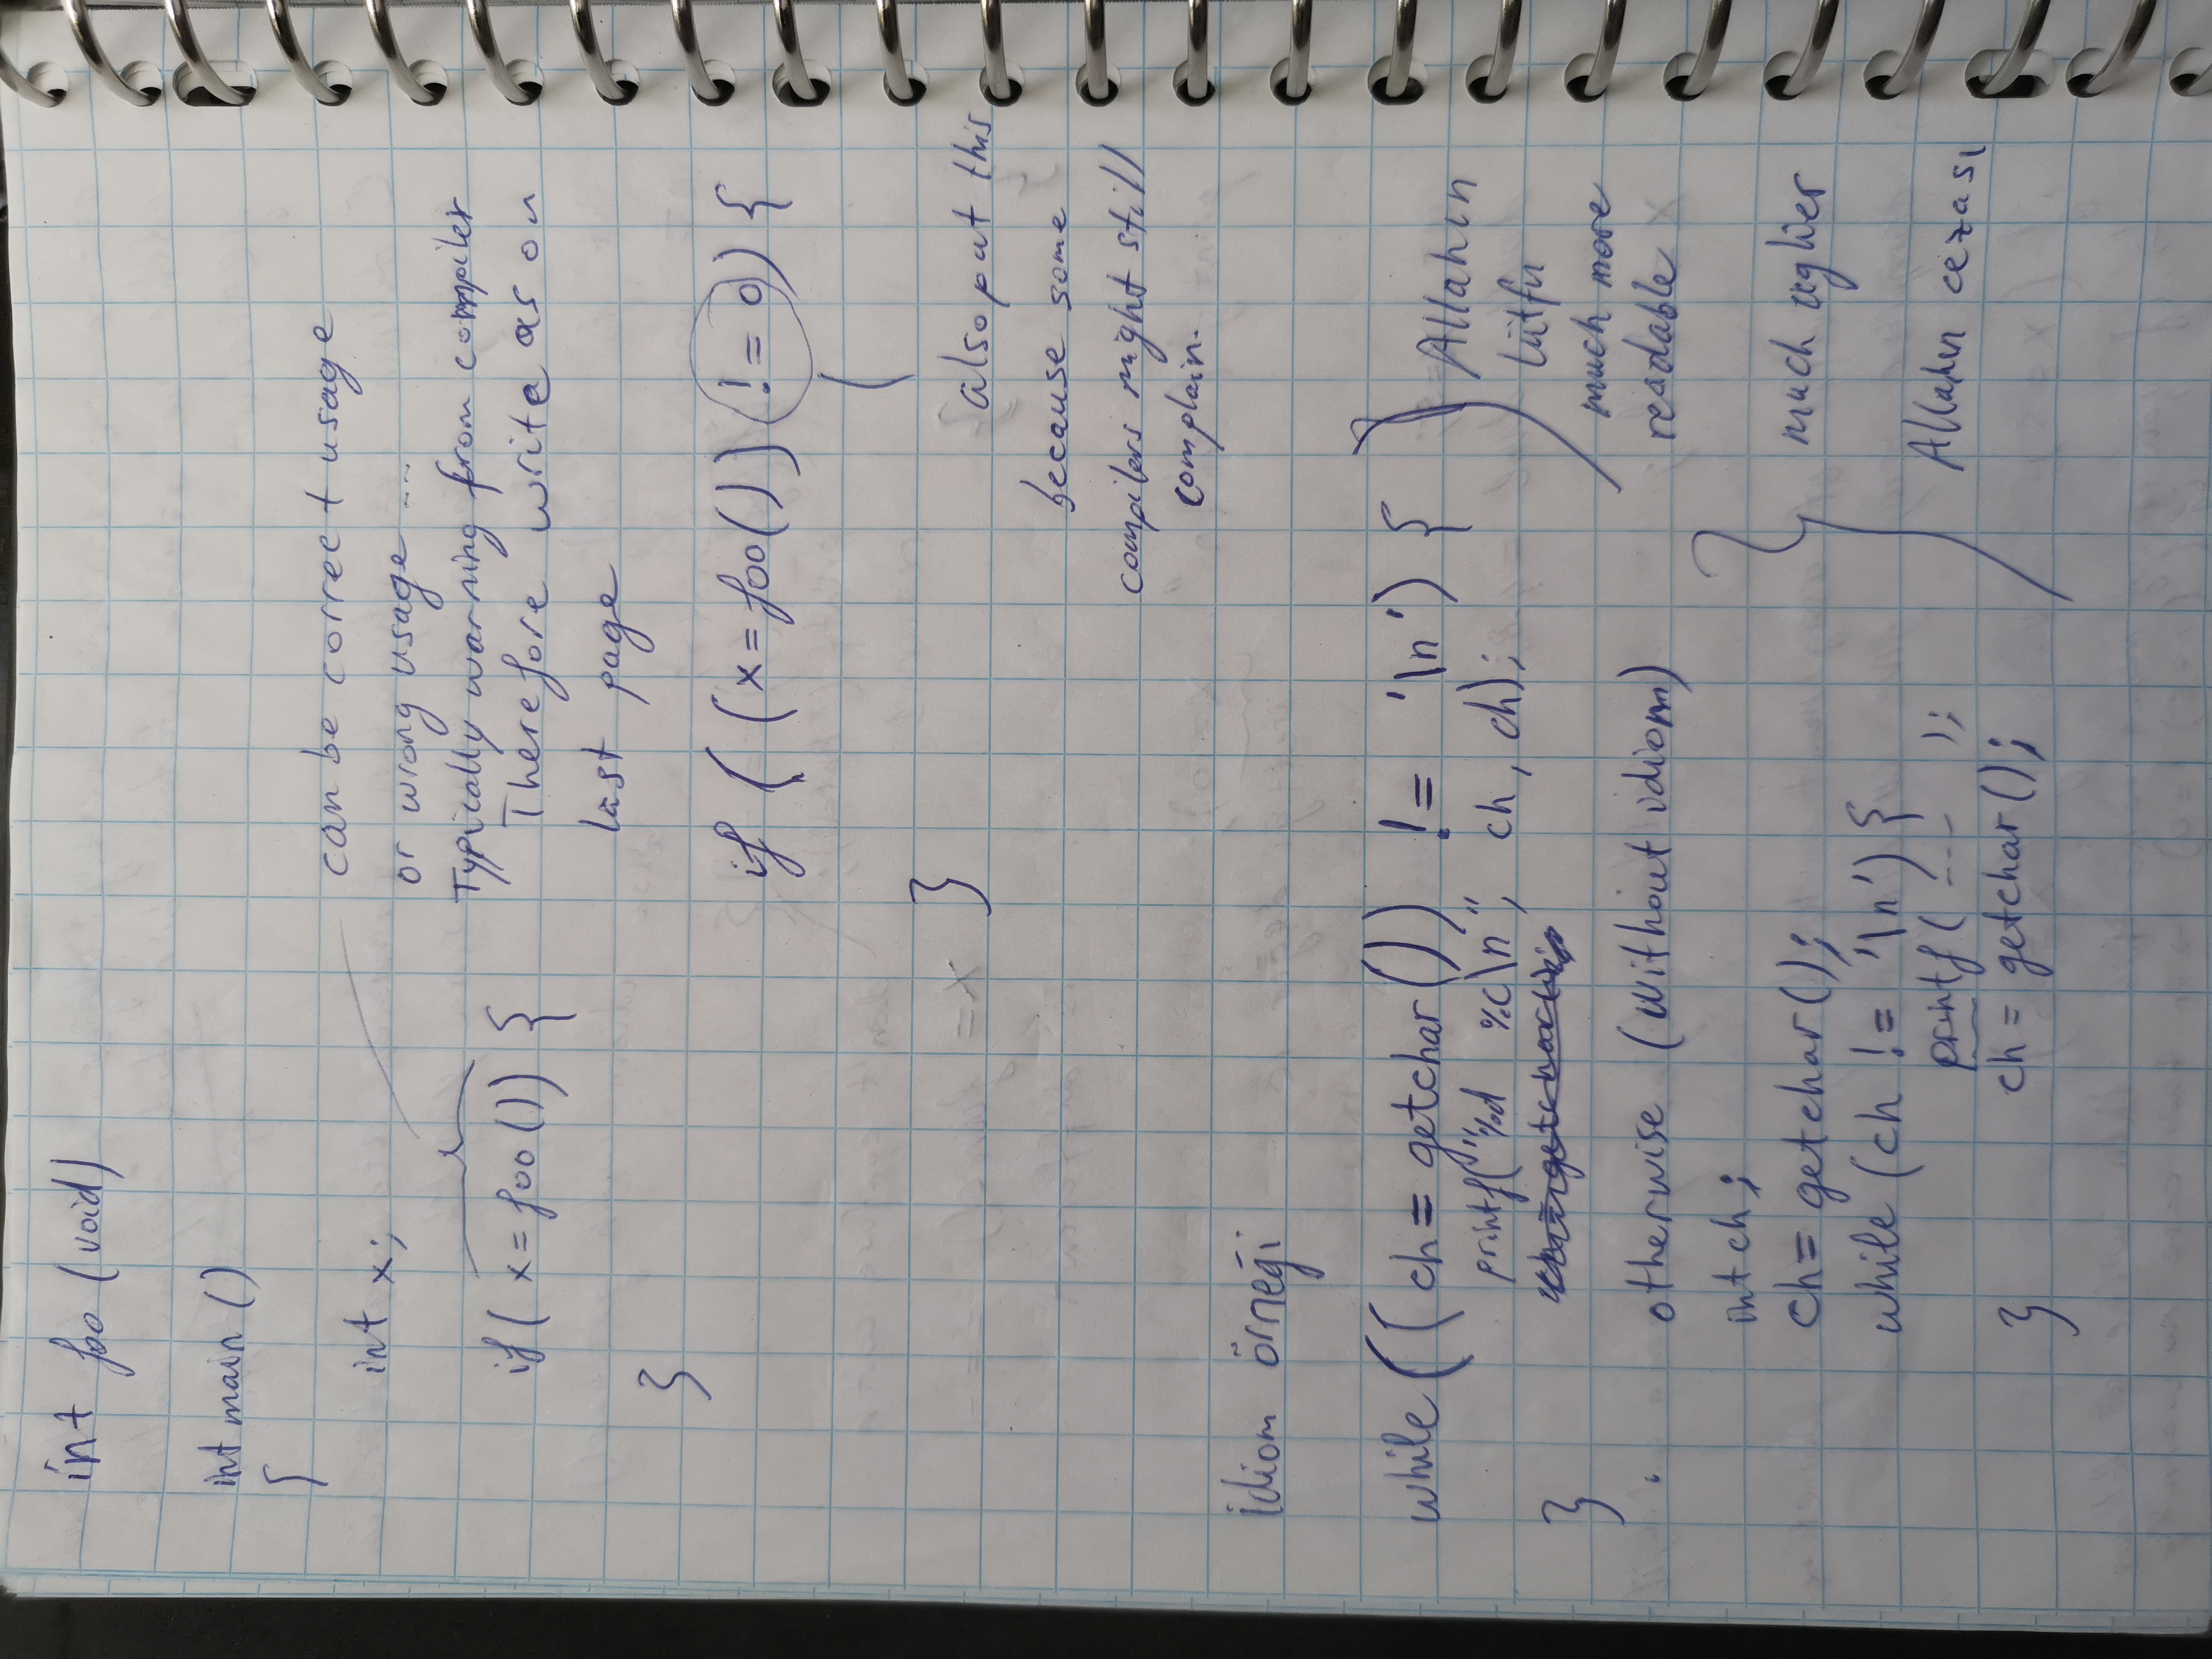 int foo (void)
int main ()
{
int x;
can be correct usage
or wrong usage ...
Typically warning from compiler
if( x = foo()) {
Therefore write as on
last page
}
if ( (x = foo()) != 0) {
}
also put this
because some
compilers might still
complain.
idiom örneği
while (( ch = getchar()) != '\n') {
printf("%d %c\n", ch, ch);
}
Allahın
lütfu
much more
readable
otherwise (without idiom)
int ch;
ch = getchar();
while (ch != '\n') {
printf( ---- );
ch = getchar();
}
much uglier
Allahın cezası